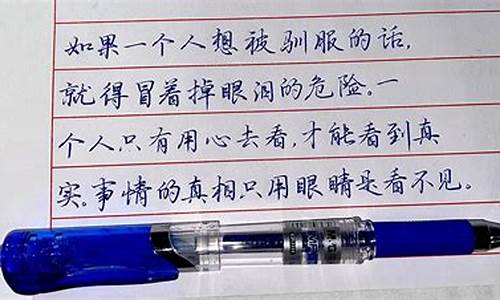 如果一个人想被驯服的话,
就得冒着掉眼泪的危险。一
个人只有用心去看,才能看到真
实。事情的真相只用眼睛是看不见。